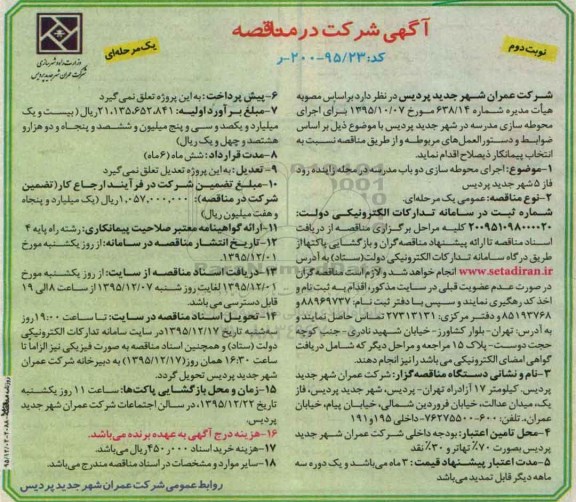 آگهی شرکت در مناقصه
کد: ۹۵/۲۳-۲۰۰-ر
نوبت دوم
یک مرحله‌ای
وزارت راه و شهرسازی
شرکت عمران شهر جدید پردیس
شرکت عمران شهر جدید پردیس در نظر دارد براساس مصوبه
هیأت مدیره شماره ۶۳۸/۱۴ مورخ ۱۳۹۵/۱۰/۰۷ برای اجرای
محوطه سازی مدرسه در شهر جدید پردیس با موضوع ذیل بر اساس
ضوابط و دستورالعمل‌های مربوطه و از طریق مناقصه نسبت به
انتخاب پیمانکار ذیصلاح اقدام نماید.
۱-موضوع: اجرای محوطه سازی دو باب مدرسه در محله زاینده رود
فاز ۵ شهر جدید پردیس
۲-نوع مناقصه: عمومی یک مرحله‌ای.
شماره ثبت در سامانه تدارکات الکترونیکی دولت:
۲۰۰۹۵۱۰۹۸۰۰۰۰۲۰ کلیه مراحل برگزاری مناقصه از دریافت
اسناد مناقصه تا ارائه پیشنهاد مناقصه گران و بازگشایی پاکتها از
طریق درگاه سامانه تدارکات الکترونیکی دولت (ستاد) به آدرس
www.setadiran.ir انجام خواهد شد و لازم است مناقصه گران
در صورت عدم عضویت قبلی در سایت مذکور، اقدام به ثبت نام و
اخذ کد رهگیری نمایند و سپس با دفتر ثبت نام: ۸۸۹۶۹۷۳۷ و
۸۵۱۹۳۷۶۸ و دفتر مرکزی: ۲۷۳۱۳۱۳۱ تماس حاصل نمایند و
به آدرس: تهران- بلوار کشاورز- خیابان شهید نادری- جنب کوچه
حجت دوست- پلاک ۱۵ مراجعه و مراحل دیگر که شامل دریافت
گواهی امضای الکترونیکی می باشد را نیز انجام دهند.
۳-نام و نشانی دستگاه مناقصه گزار: شرکت عمران شهر جدید
پردیس. کیلومتر ۱۷ آزادراه تهران- پردیس، شهر جدید پردیس، فاز
یک، میدان عدالت، خیابان فروردین شمالی، خیابان پیام، خیابان
عمران، تلفن: ۶۰۰-۷۶۲۷۵۵۰۰-داخلی ۱۹۵ و ۱۹۱
۴-محل تامین اعتبار: بودجه داخلی شرکت عمران شهر جدید
پردیس بصورت ۷۰٪ تهاتر و ۳۰٪ نقد
۵-مدت اعتبار پیشنهاد قیمت: ۳ ماه می‌باشد و یک دوره سه
ماهه دیگر قابل تمدید می باشد
۶-پیش پرداخت: به این پروژه تعلق نمی گیرد
۷-مبلغ برآورد اولیه: ۲۱،۱۳۵،۶۵۲،۸۴۱ ریال (بیست و یک
میلیارد و یکصد و سی و پنج میلیون و ششصد و پنجاه و دو هزار و
هشتصد و چهل و یک ریال)
۸-مدت قرارداد: شش ماه (۶ ماه)
۹-تعدیل: به این پروژه تعدیل تعلق نمی گیرد
۱۰-مبلغ تضمین شرکت در فرآیند ارجاع کار (تضمین
شرکت در مناقصه): ۱،۰۵۷،۰۰۰،۰۰۰ ریال (یک میلیارد و پنجاه
و هفت میلیون ریال)
۱۱-ارائه گواهینامه معتبر صلاحیت پیمانکاری: رشته راه پایه ۴
۱۲-تاریخ انتشار مناقصه در سامانه: از روز یکشنبه مورخ
۱۳۹۵/۱۲/۰۱.
۱۳-دریافت اسناد مناقصه از سایت: از روز یکشنبه مورخ
۱۳۹۵/۱۲/۰۱ لغایت روز شنبه ۱۳۹۵/۱۲/۰۷ از ساعت ۸ الی ۱۹
قابل دسترسی می باشد.
۱۴-تحویل اسناد مناقصه در سایت: تا ساعت ۱۹:۰۰ روز
سه‌شنبه تاریخ ۱۳۹۵/۱۲/۱۷ در سایت سامانه تدارکات الکترونیکی
دولت (ستاد) و همچنین اسناد مناقصه به صورت فیزیکی نیز الزاماً تا
ساعت ۱۶:۳۰ همان روز (۱۳۹۵/۱۲/۱۷) به دبیرخانه شرکت عمران
شهر جدید پردیس تحویل گردد.
۱۵-زمان و محل بازگشایی پاکت‌ها: ساعت ۱۱ روز یکشنبه
تاریخ ۱۳۹۵/۱۲/۲۲، در سالن اجتماعات شرکت عمران شهر جدید
پردیس.
۱۶-هزینه درج آگهی به عهده برنده می‌باشد.
۱۷-هزینه خرید اسناد ۴۵۰،۰۰۰ ریال می باشد.
۱۸-سایر موارد و مشخصات در اسناد مناقصه مندرج می باشد.
روابط عمومی شرکت عمران شهر جدید پردیس